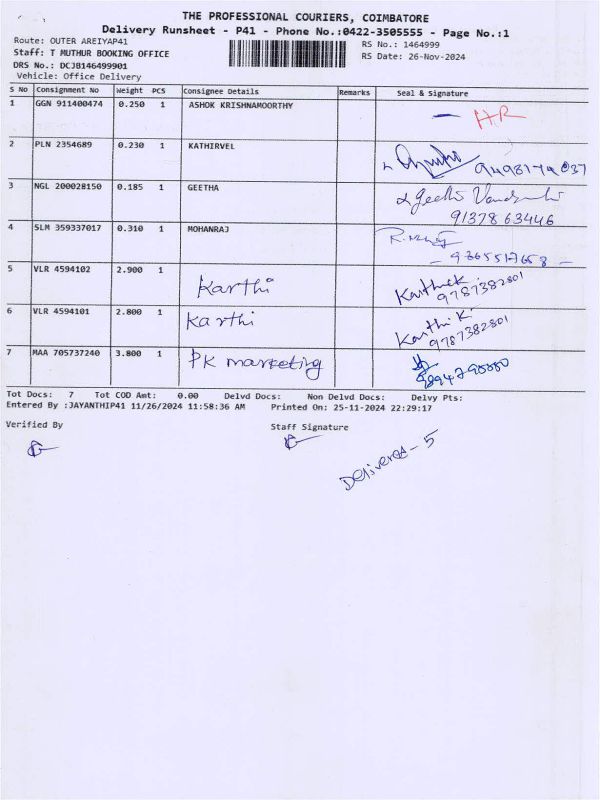 THE PROFESSIONAL COURIERS, COIMBATORE
Delivery Runsheet - P41 - Phone No.:0422-3505555 - Page No.:1
Route: OUTER AREIYAP41 RS No.: 1464999
Staff: T MUTHUR BOOKING OFFICE RS Date: 26-Nov-2024
DRS No.: DCJB146499901
Vehicle: Office Delivery
S No Consignment No Weight PCS Consignee Details Remarks Seal & Signature
1 GGN 911400474 0.250 1 ASHOK KRISHNAMOORTHY HR
2 PLN 2354689 0.230 1 KATHIRVEL
3 NGL 200028150 0.185 1 GEETHA Geetha
9137863446
4 SLM 359337017 0.310 1 MOHANRAJ
9365517658
5 VLR 4594102 2.900 1 Karthi Karthick
9787382801
6 VLR 4594101 2.800 1 Karthi Karthi K
9787382801
7 MAA 705737240 3.800 1 PK marketing
Tot Docs: 7 Tot COD Amt: 0.00 Delvd Docs: Non Delvd Docs: Delvy Pts:
Entered By :JAYANTHIP41 11/26/2024 11:58:36 AM Printed On: 25-11-2024 22:29:17
Verified By Staff Signature
Delivered - 5